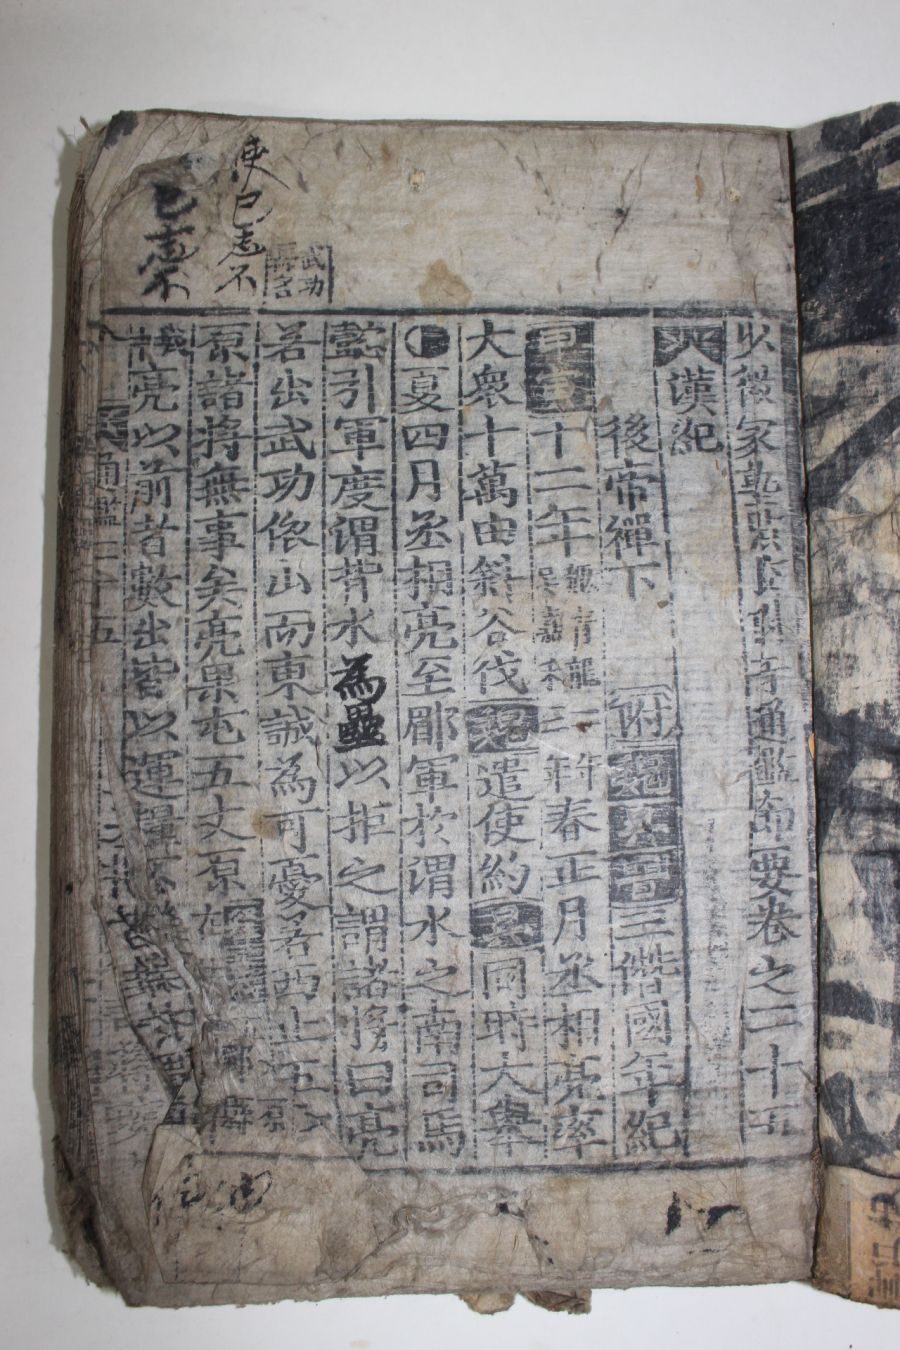 少微家塾點校附音通鑑節要卷之二十五
漢紀
後帝禪下 附魏吳晉三僭國年紀
甲寅十二年魏青龍二年吳嘉禾三年春正月丞相亮率
大衆十萬由斜谷伐魏遣使約吳同時大舉
夏四月丞相亮至郿軍於渭水之南司馬
懿引軍度渭背水為壘以拒之謂諸將曰亮
武功
縣名
若出武功依山而東誠為可憂若西上五丈
使己志不
原諸將無事矣亮果屯五丈原
己志不
亮以前者數出皆以運糧不繼
通鑑二十五